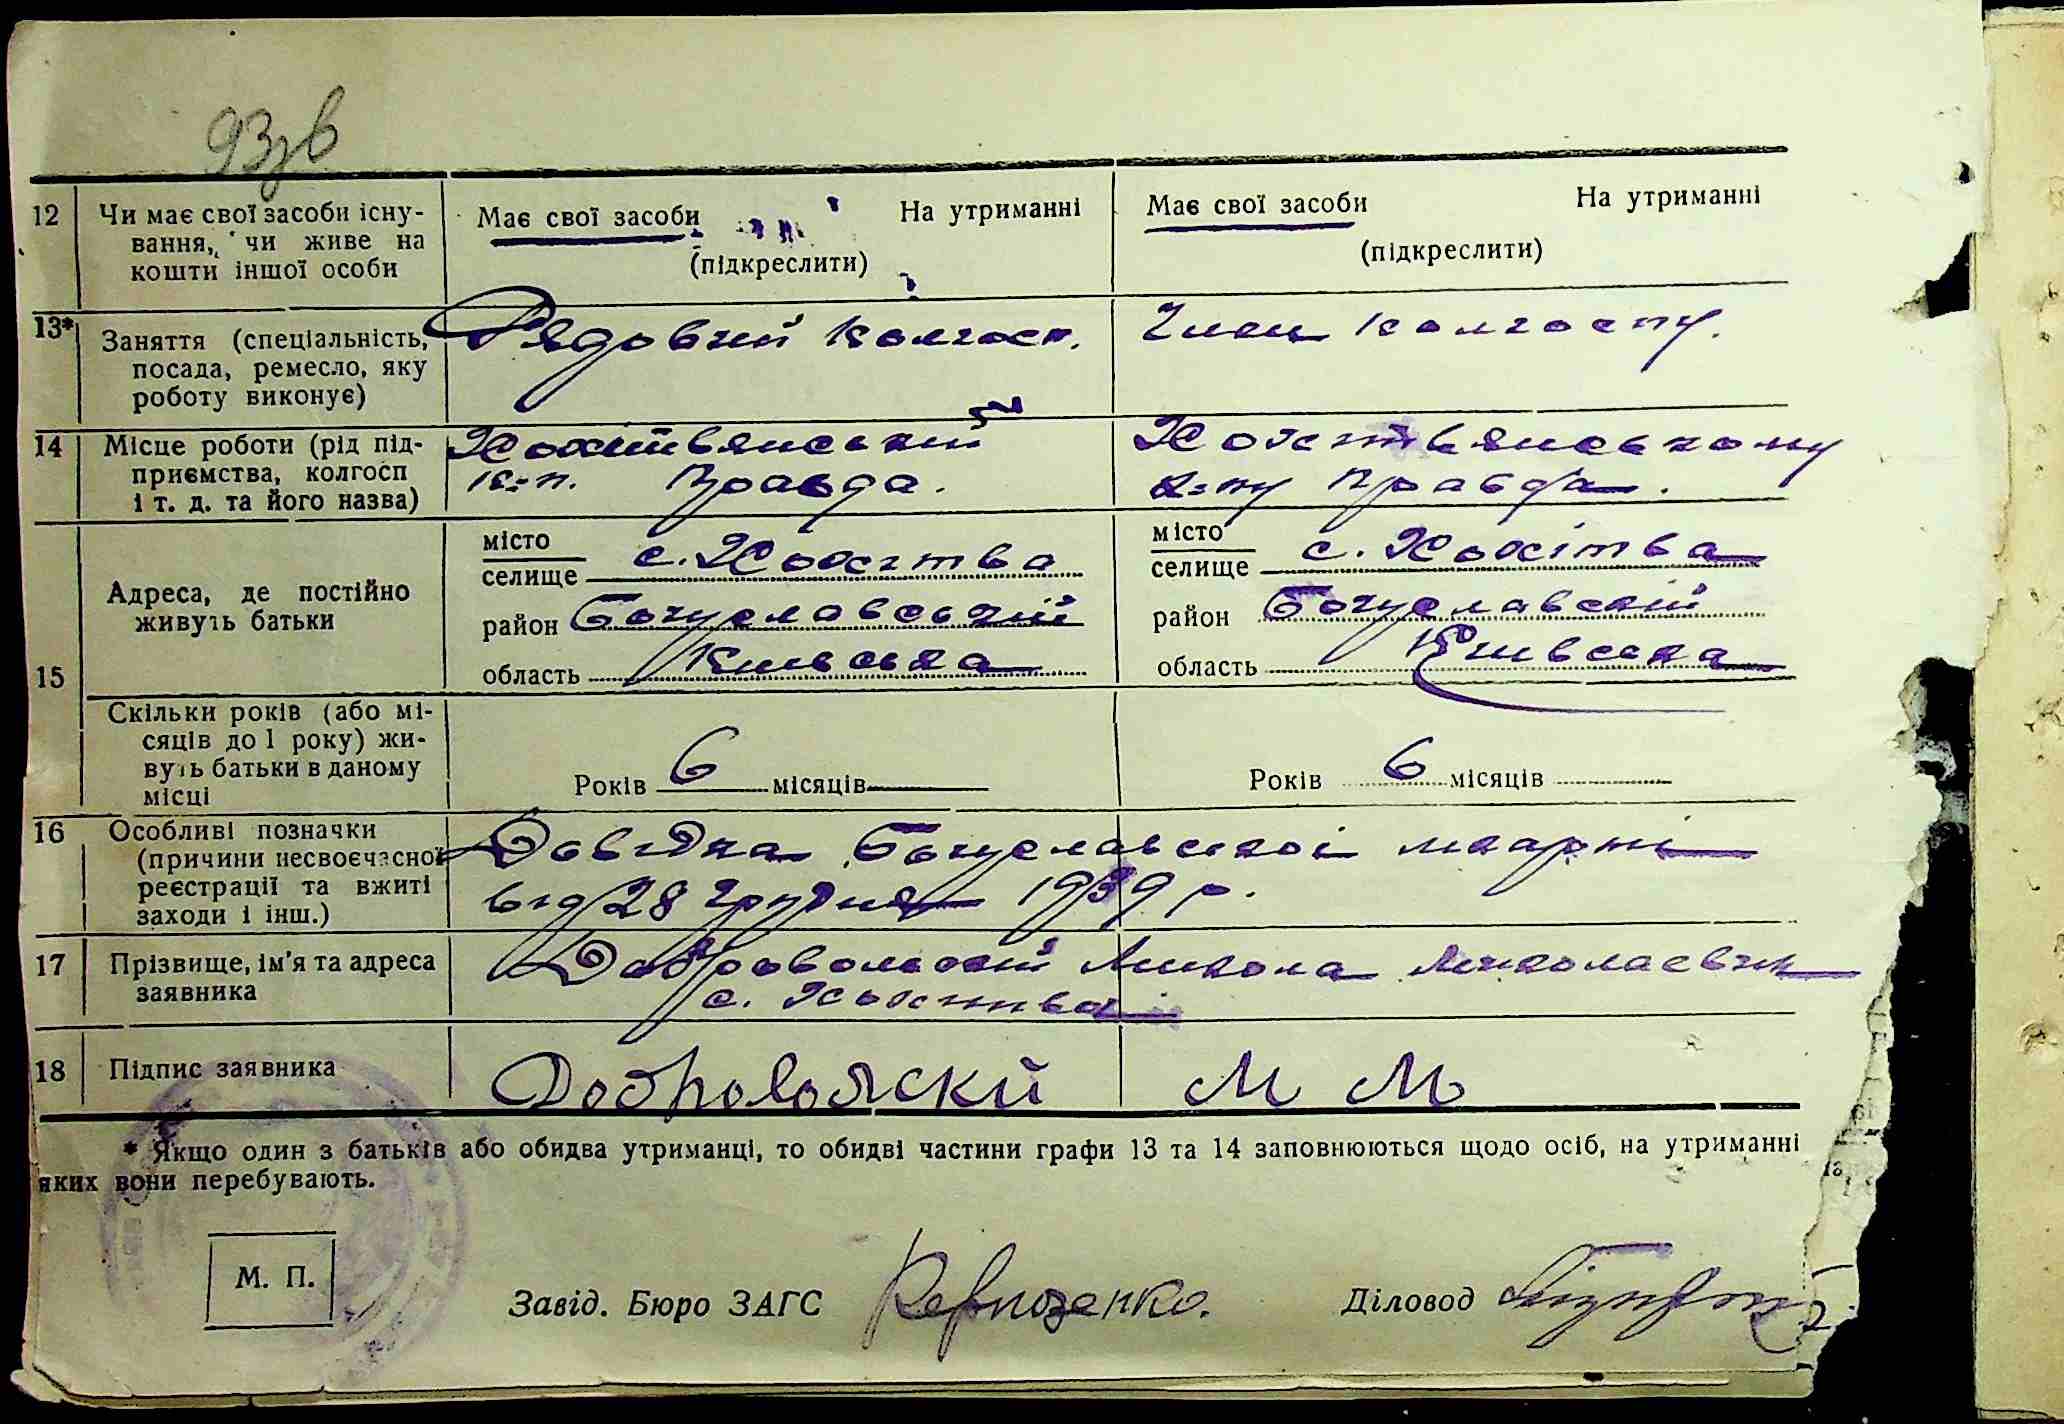 93зв
12 Чи має свої засоби існу- Має свої засоби На утриманні Має свої засоби На утриманні
вання, чи живе на (підкреслити) (підкреслити)
кошти іншої особи
13* Заняття (спеціальність, Рядовий колгосп. Член колгоспу.
посада, ремесло, яку
роботу виконує)
14 Місце роботи (рід під- Хохітвянський Хохітвянському
приємства, колгосп к-п. Правда. к-пу Правда.
і т. д. та його назва)
15 Адреса, де постійно живуть батьки
місто
селище с. Хохітва
район Богуславський
область Київська
місто
селище с. Хохітва
район Богуславский
область Київська
Скільки років (або мі-
сяців до 1 року) жи-
вуть батьки в даному
місці
Років 6 місяців Років 6 місяців
16 Особливі позначки Довідка Богуславської
(причини несвоєчасної від 28 грудня 1939 р.
реєстрації та вжиті
заходи і інш.)
17 Прізвище, ім'я та адреса Добровольский Микола Миколаєвич
заявника с. Хохітва
18 Підпис заявника М М
* Якщо один з батьків або обидва утриманці, то обидві частини графи 13 та 14 заповнюються щодо осіб, на утриманні
яких вони перебувають.
М. П.
Завід. Бюро ЗАГС Діловод